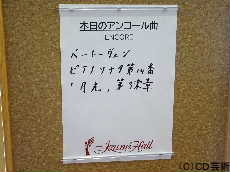 本日のアンコール曲
ENCORE
ベートーヴェン
ピアノソナタ第14番
「月光」第3楽章
Izumi Hall
(C)CD芸術